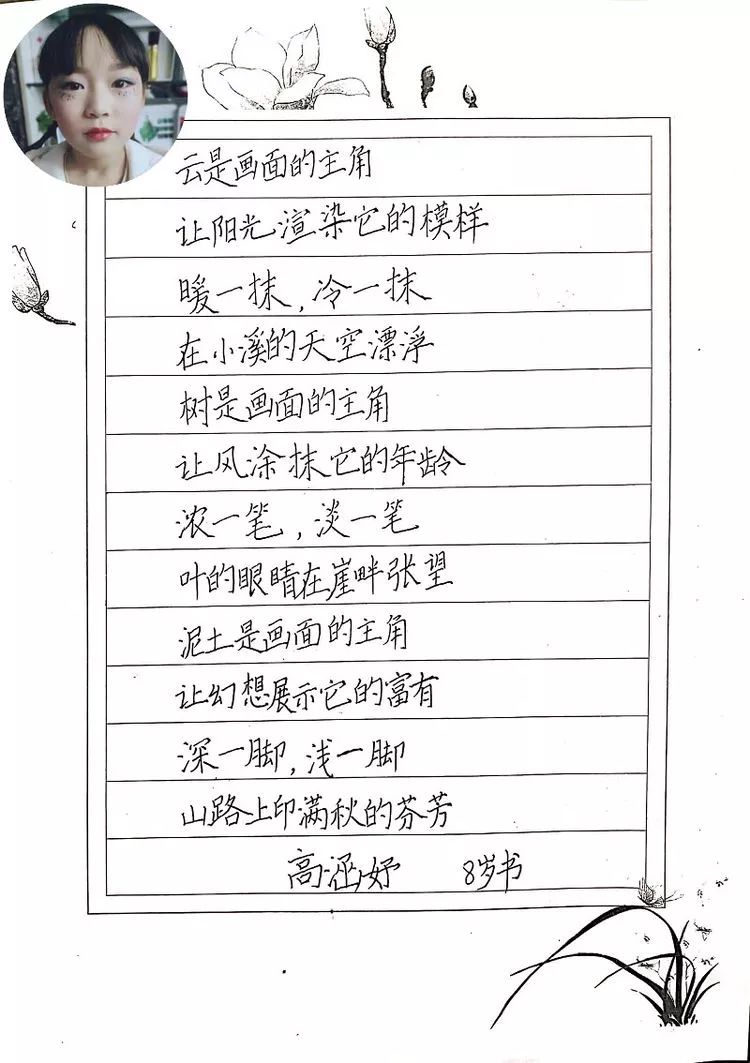 云是画面的主角
让阳光渲染它的模样
暖一抹,冷一抹
在小溪的天空漂浮
树是画面的主角
让风涂抹它的年龄
浓一笔,淡一笔
叶的眼睛在崖畔张望
泥土是画面的主角
让幻想展示它的富有
深一脚,浅一脚
山路上印满秋的芬芳
高涵妤 8岁书